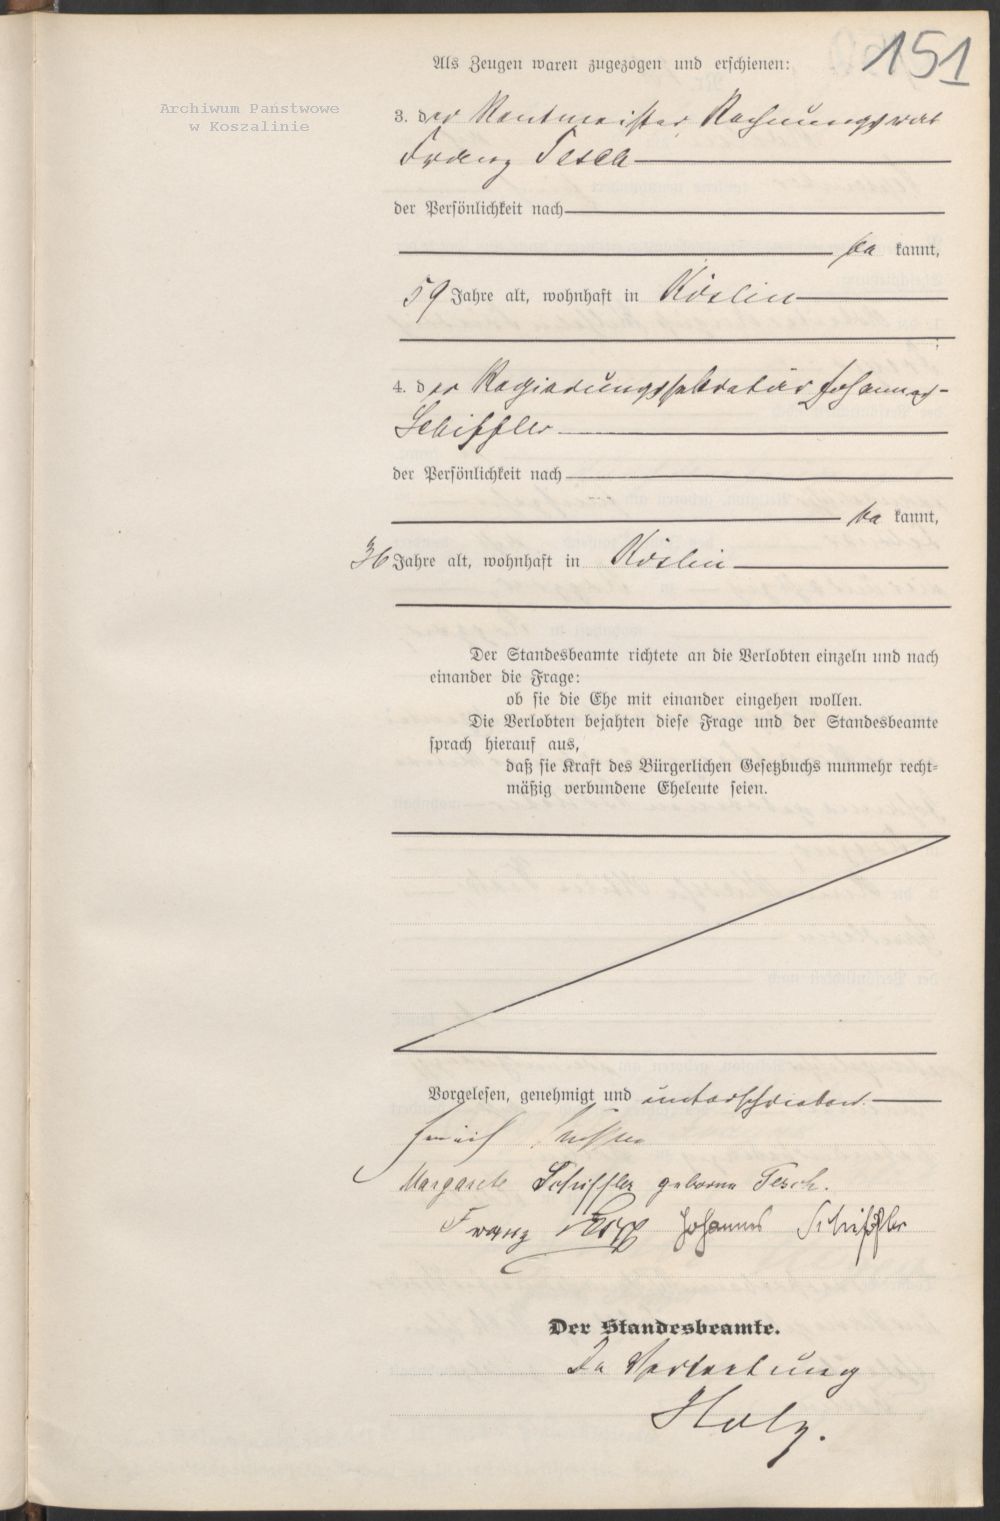 151
Als Zeugen waren zugezogen und erschienen:
Archiwum Państwowe
w Koszalinie
3. der Rentmeister, Rechnungsrat
Franz Tesch
der Persönlichkeit nach
be kannt,
59 Jahre alt, wohnhaft in Köslin
4. der Regierungssekretär Johannes
Schiffler
der Persönlichkeit nach
be kannt,
36 Jahre alt, wohnhaft in Köslin
Der Standesbeamte richtete an die Verlobten einzeln und nach
einander die Frage:
ob sie die Ehe mit einander eingehen wollen.
Die Verlobten bejahten diese Frage und der Standesbeamte
sprach hierauf aus,
daß sie Kraft des Bürgerlichen Gesetzbuchs nunmehr recht-
mäßig verbundene Eheleute seien.
Vorgelesen, genehmigt und unterschrieben.
Margarete Schiffler geborene Tesch.
Franz Tesch Johannes Schiffler
Der Standesbeamte.
In Vertretung
Holz.